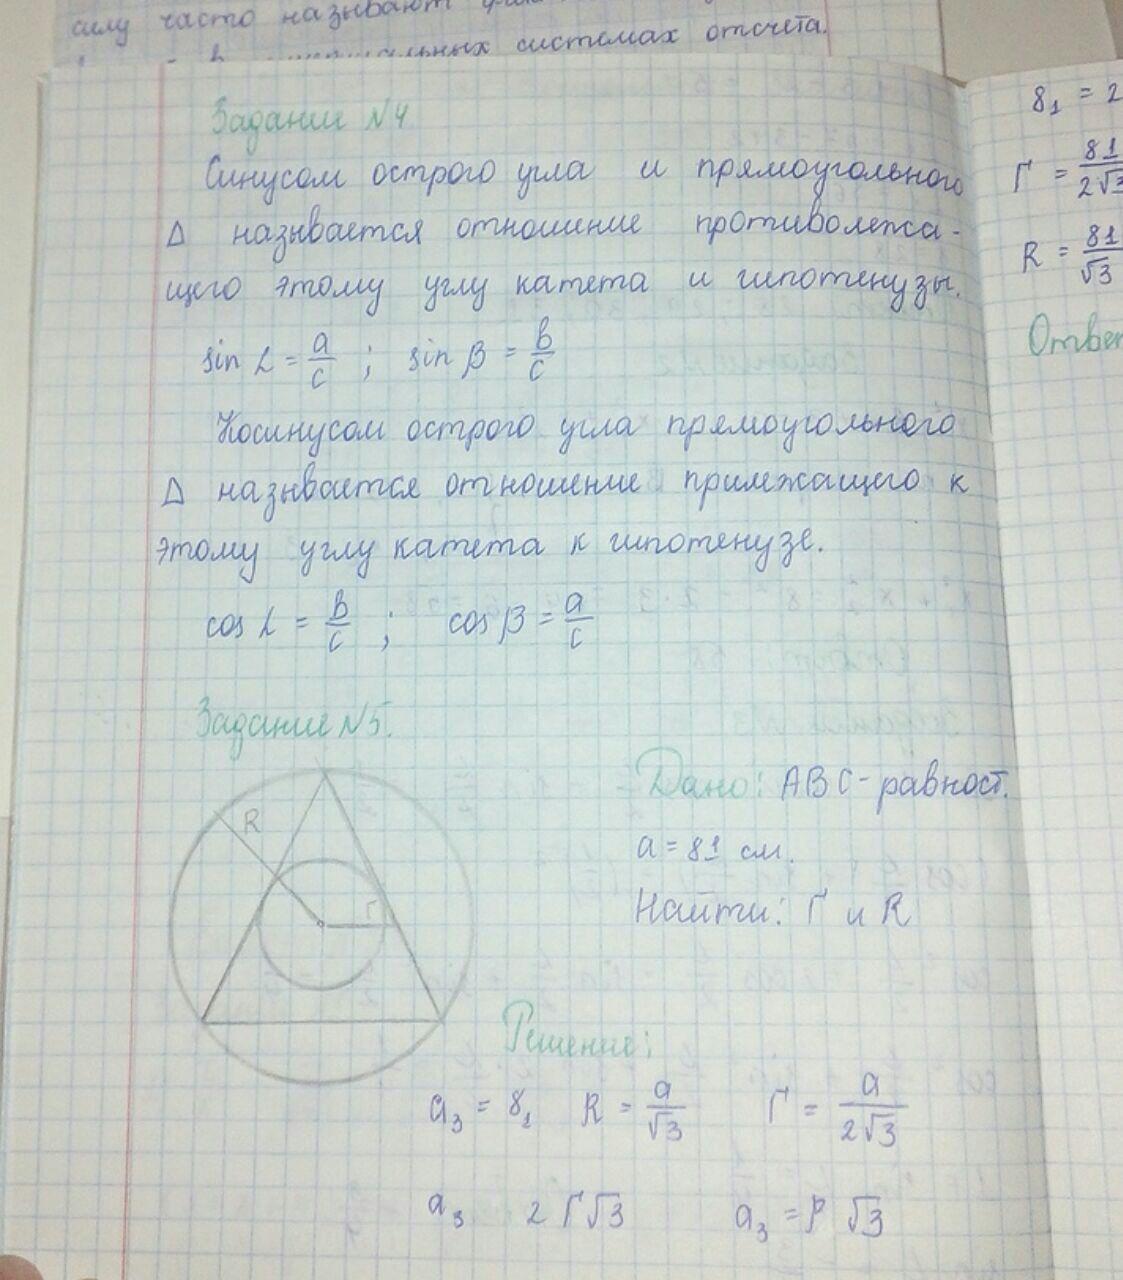 силу часто называют
системах отсчета.
Задание N4
Синусом острого угла и прямоугольного
Δ называется отношение противолежа-
щего этому углу катета и гипотенузы.
sin α = a/c ; sin β = b/c
Косинусом острого угла прямоугольного
Δ называется отношение прилежащего к
этому углу катета к гипотенузе.
cos α = b/c ; cos β = a/c
Задание N5.
R
r
Дано: ABC - равност.
a = 81 см.
Найти: r и R
Решение:
a₃ = 8₁ R = a/√3 r = a/2√3
a₃ 2 r√3 a₃ = R √3
8₁ = 2
r = 81/2√3
R = 81/√3